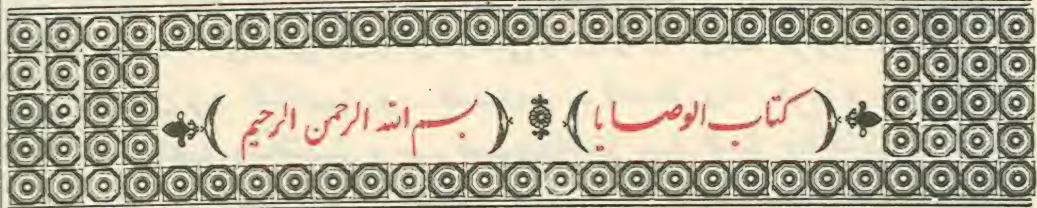 ﴿ كتاب الوصايا ﴾ ﴿ بسم الله الرحمن الرحيم ﴾